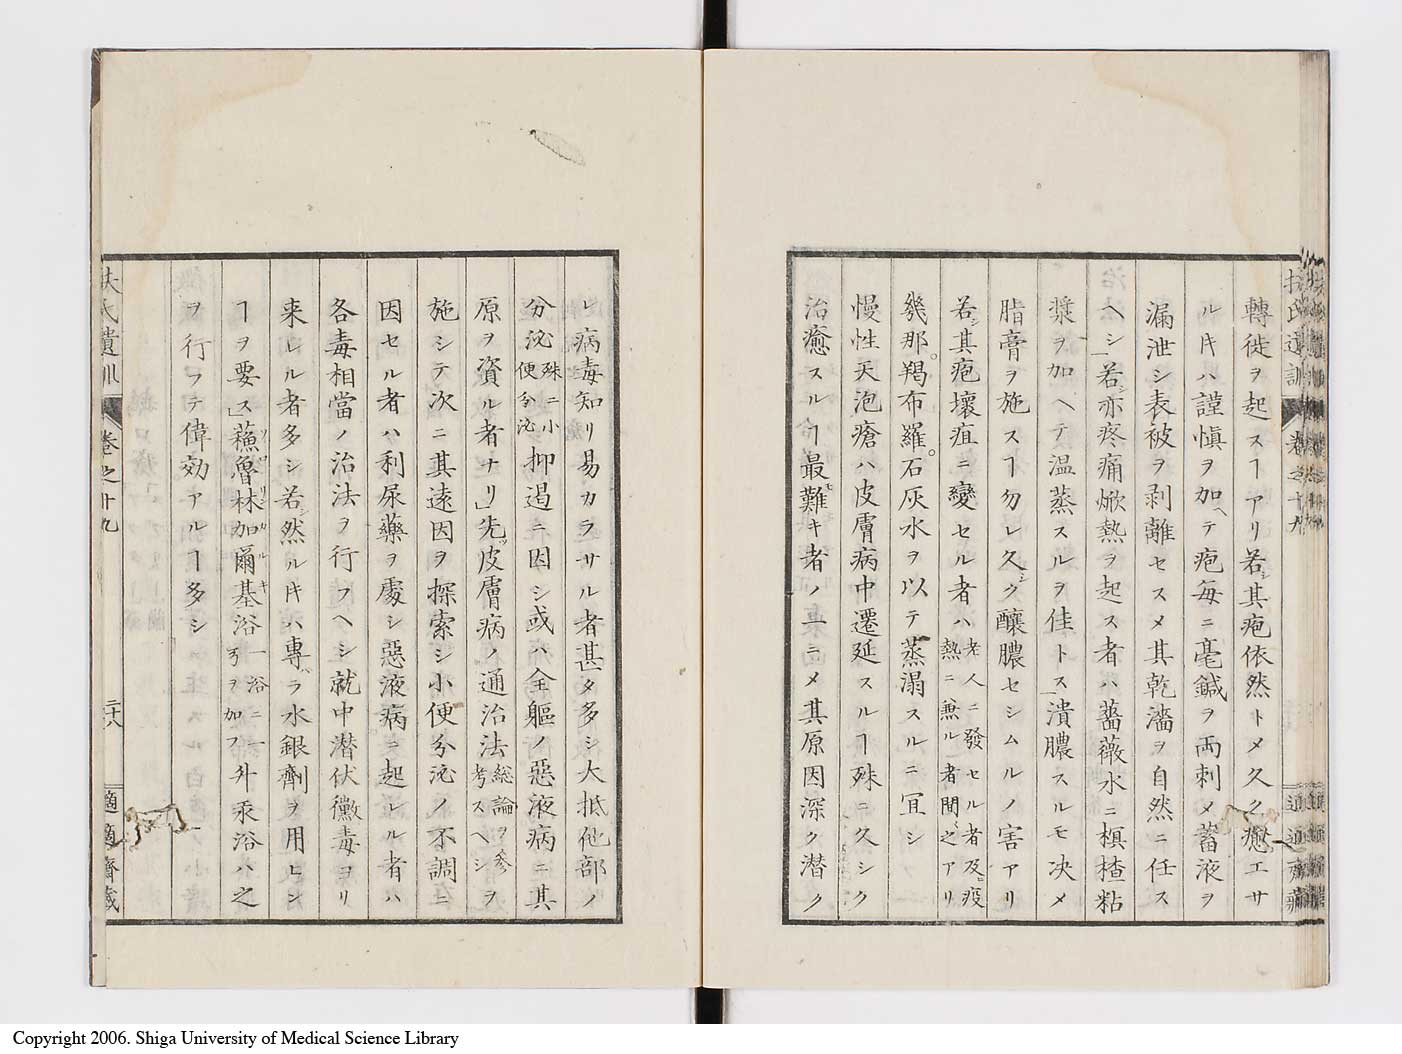 轉徙ヲ起スヿアリ若シ其疱依然トメ久ク癒エサ
ルキハ謹愼ヲ加ヘテ疱毎ニ毫鍼ヲ両刺メ蓄液ヲ
漏泄シ表被ヲ剥離セスメ其乾濇ヲ自然ニ任ス
ヘシ若シ亦疼痛焮熱ヲ起ス者ハ薔薇水ニ榠楂粘
漿ヲ加ヘテ温蒸スルヲ佳トス潰膿スルモ决メ
脂膏ヲ施スヿ勿レ久シク釀膿セシムルノ害アリ
若シ其疱壞疽ニ變セル者ハ老人ニ發セル者及ヒ疫熱ニ兼ル者間之アリ
幾那。羯布羅。石灰水ヲ以テ蒸溻スルニ冝シ
慢性天泡瘡ハ皮膚病中遷延スルヿ殊ニ久シク
治癒スルヿ最モ難キ者ノ一ニメ其原因深ク潜ク
レ病毒知リ易カラサル者甚タ多シ大抵他部ノ
分泌殊ニ小便分泌抑遏ニ因シ或ハ全軀ノ惡液病ニ其
原ヲ資ル者ナリ」先ツ皮膚病ノ通治法総論ヲ参考スヘシヲ
施シテ次ニ其遠因ヲ探索シ小便分泌ノ不調ニ
因セル者ハ利尿藥ヲ處シ惡液病ヨリ起レル者ハ
各毒相當ノ治法ヲ行フヘシ就中潜伏黴毒ヨリ
来レル者多シ若シ然ルキハ專ハラ水銀劑ヲ用ヒン
ヿヲ要ス」蘓魯林加爾基浴一浴ニ一弓ヲ加フ外汞浴ハ之
ヲ行フテ偉効アルヿ多シ
扶氏遺訓 卷之十九 二十八 適適齋藏
Copyright 2006. Shiga University of Medical Science Library